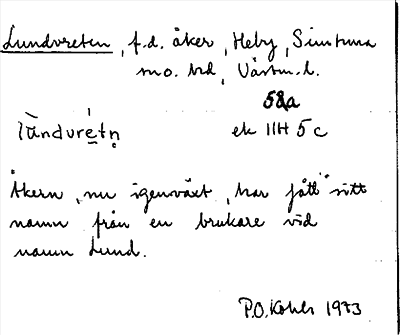 Lundvreten, f.d. åker, Heby, Simtuna
sno. hd, Västm. l.
58a
lùndvré̀tn̥ ek 11H 5c
Åkern, nu igenväxt, har fått sitt
namn från en brukare vid
namn Lund.
P.O. 1973